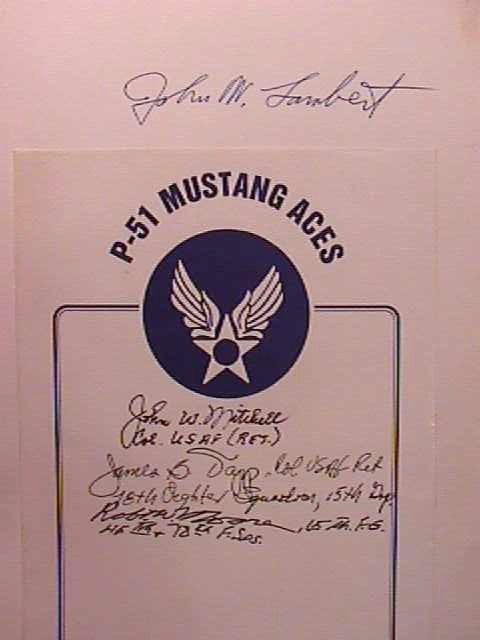 John W. Lambert
P-51 MUSTANG ACES
John W. Mitchell
Col. USAF (RET.)
James B Tapp, Col USAF Ret
78th Fighter Squadron, 15th Grp
Robert W Moore, 15 th. F.G.
& 78th F. Sqs.